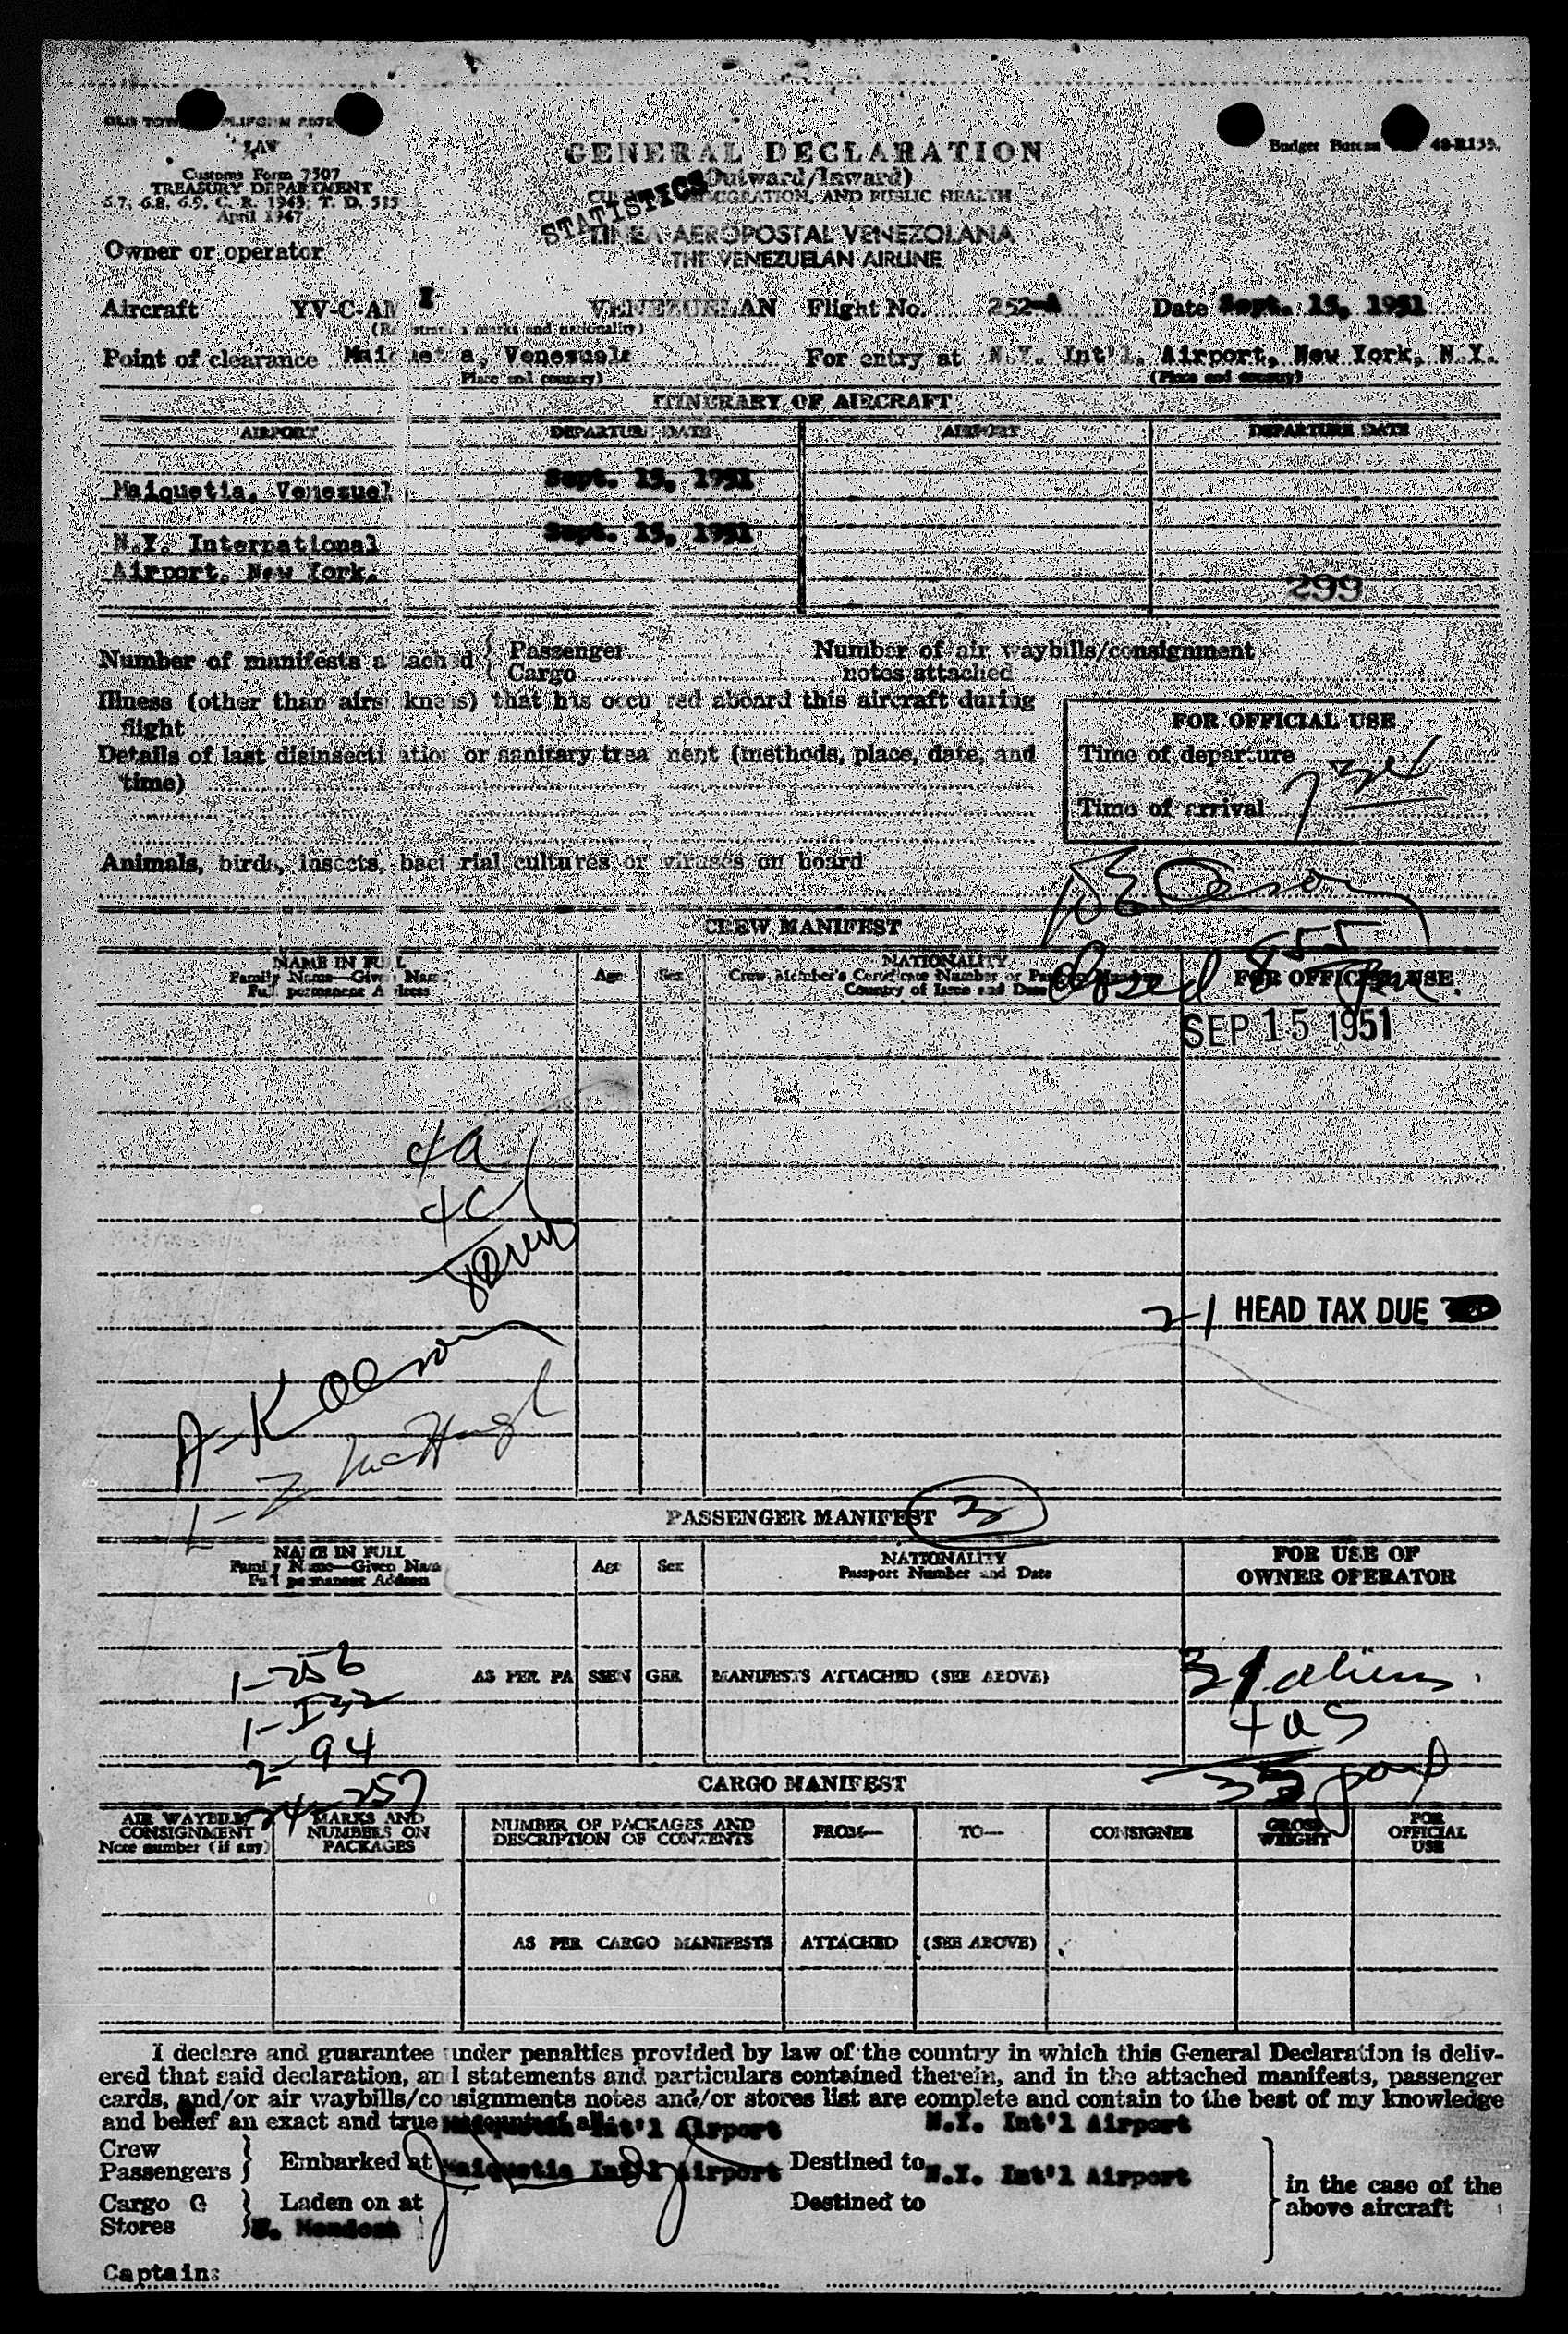 LAV
Customs Form 7507
TREASURY DEPARTMENT
April 1947
Budget Bureau 48-R155.
GENERAL DECLARATION
(Outward/Inward)
IMMIGRATION, AND PUBLIC HEALTH
STATISTICS
LINEA AEROPOSTAL VENEZOLANA
THE VENEZUELAN AIRLINE
Owner or operator
Aircraft YV-C-AM I VENEZUELAN Flight No. 252-A Date Sept. 15, 1951
(Registration marks and nationality)
Point of clearance Maiquetia, Venezuela For entry at N.Y. Int'l. Airport, New York, N.Y.
(Place and country) (Place and country)
ITINERARY OF AIRCRAFT
AIRPORT DEPARTURE DATE AIRPORT DEPARTURE DATE
Maiquetia, Venezuel Sept. 15, 1951
N.Y. International Sept. 15, 1951
Airport, New York.
299
Number of manifests attached { Passenger Number of air waybills/consignment
Cargo notes attached
Illness (other than airsickness) that has occurred aboard this aircraft during
flight
Details of last disinsectization or sanitary treatment (methods, place, date, and
time)
FOR OFFICIAL USE
Time of departure
Time of arrival
Animals, birds, insects, bacterial cultures or viruses on board
CREW MANIFEST
NAME IN FULL Age Sex NATIONALITY FOR OFFICIAL USE
Family Name—Given Name Crew Member's Certificate Number or Passport Number
Full permanent Address Country of Issue and Date
855
SEP 15 1951
4a
4c
21 HEAD TAX DUE
McHugh
PASSENGER MANIFEST 3
NAME IN FULL Age Sex NATIONALITY FOR USE OF
Family Name—Given Name Passport Number and Date OWNER OPERATOR
Full permanent Address
1-256
AS PER PA SSEN GER MANIFESTS ATTACHED (SEE ABOVE)
aliens
2-94
24-257
CARGO MANIFEST
AIR WAYBILL/ MARKS AND NUMBER OF PACKAGES AND FROM— TO— CONSIGNEE GROSS FOR
CONSIGNMENT NUMBERS ON DESCRIPTION OF CONTENTS WEIGHT OFFICIAL
Note number (if any) PACKAGES USE
AS PER CARGO MANIFESTS ATTACHED (SEE ABOVE)
I declare and guarantee under penalties provided by law of the country in which this General Declaration is deliv-
ered that said declaration, and statements and particulars contained therein, and in the attached manifests, passenger
cards, and/or air waybills/consignments notes and/or stores list are complete and contain to the best of my knowledge
and belief an exact and true Int'l Airport N.Y. Int'l Airport
Crew
Passengers } Embarked at Maiquetia Int'l Airport Destined to N.Y. Int'l Airport
Cargo
Stores } Laden on at Destined to
in the case of the
above aircraft
Mendoza
Captain: